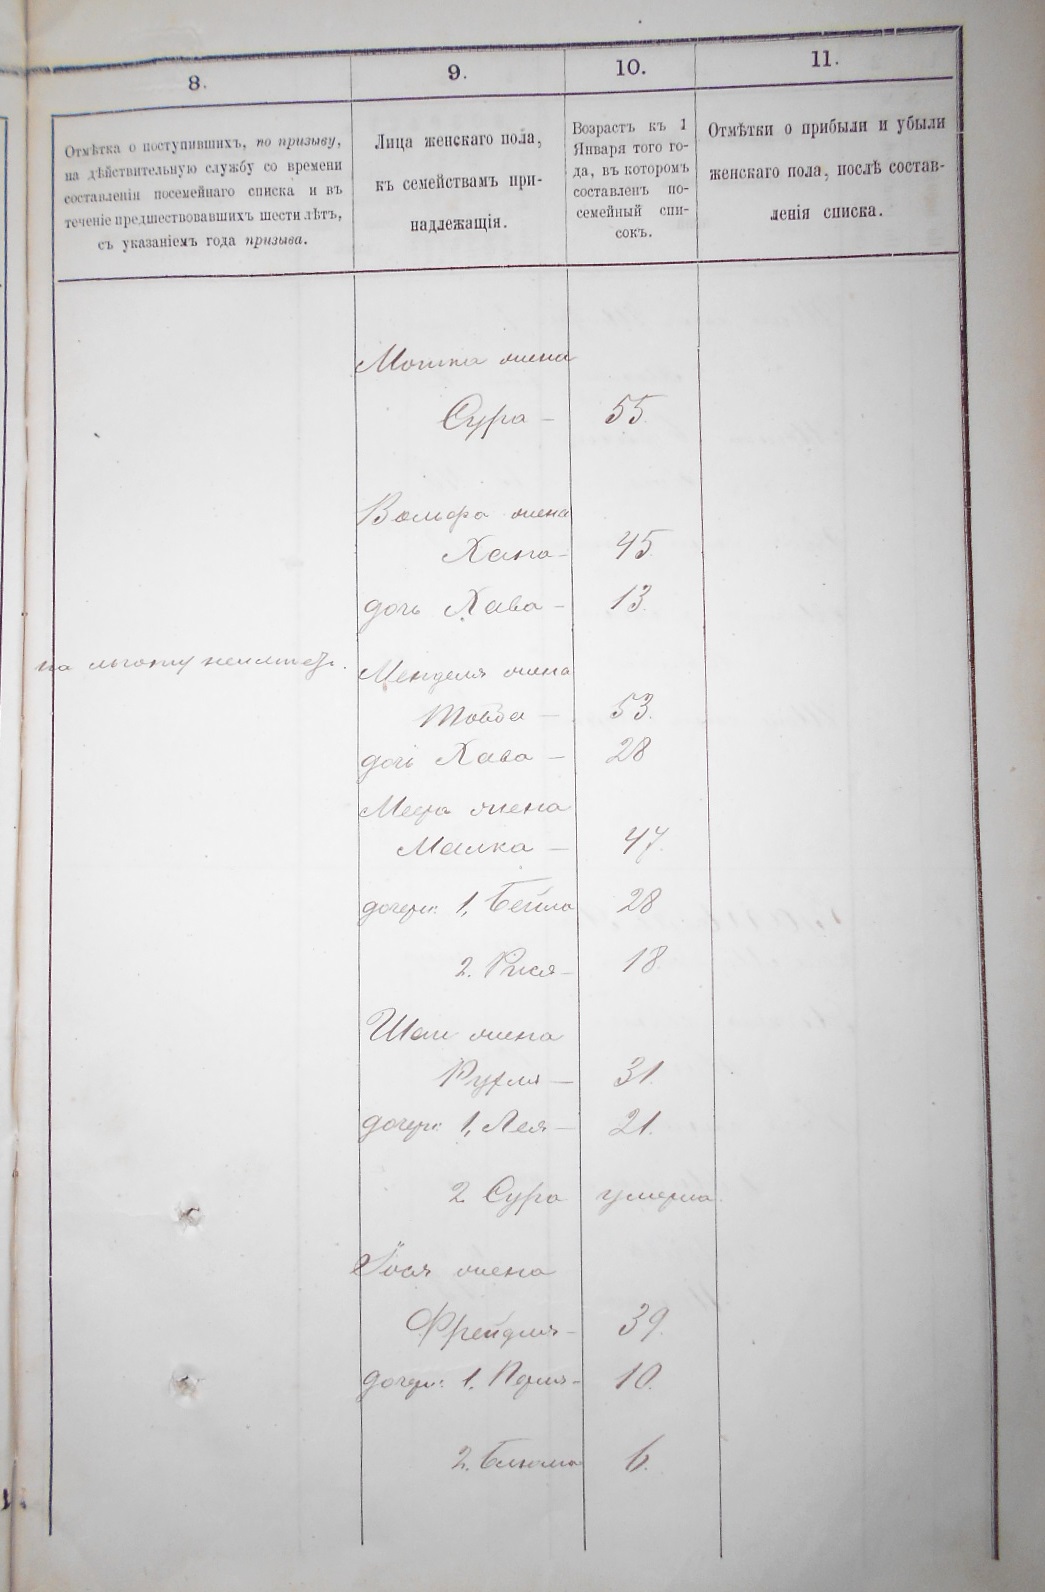 8.
9.
10.
11.
Отмѣтка о поступившихъ, по призыву,
на дѣйствительную службу со времени
составленія посемейнаго списка и въ
теченіе предшествовавшихъ шести лѣтъ,
съ указаніемъ года призыва.
Лица женскаго пола,
къ семействамъ при-
надлежащія.
Возрастъ къ 1
Января того го-
да, въ которомъ
составленъ по-
семейный спи-
сокъ.
Отмѣтки о прибыли и убыли
женскаго пола, послѣ состав-
ленія списка.
Мошка жена
Сура — 55.
Вольфа жена
Хана — 45
дочь Хава — 13.
на льготу
Менделя жена
Тойба — 53.
дочь Хава — 28
Меера жена
Малка — 47.
дочери: 1, Бейла 28
2. Рися — 18
жена
Рухля — 31.
дочери: 1, Лея — 21.
2 Сура умерла.
Іося жена
Фрейдля — 39.
дочери: 1. Перля — 10.
2. Блюма 6.